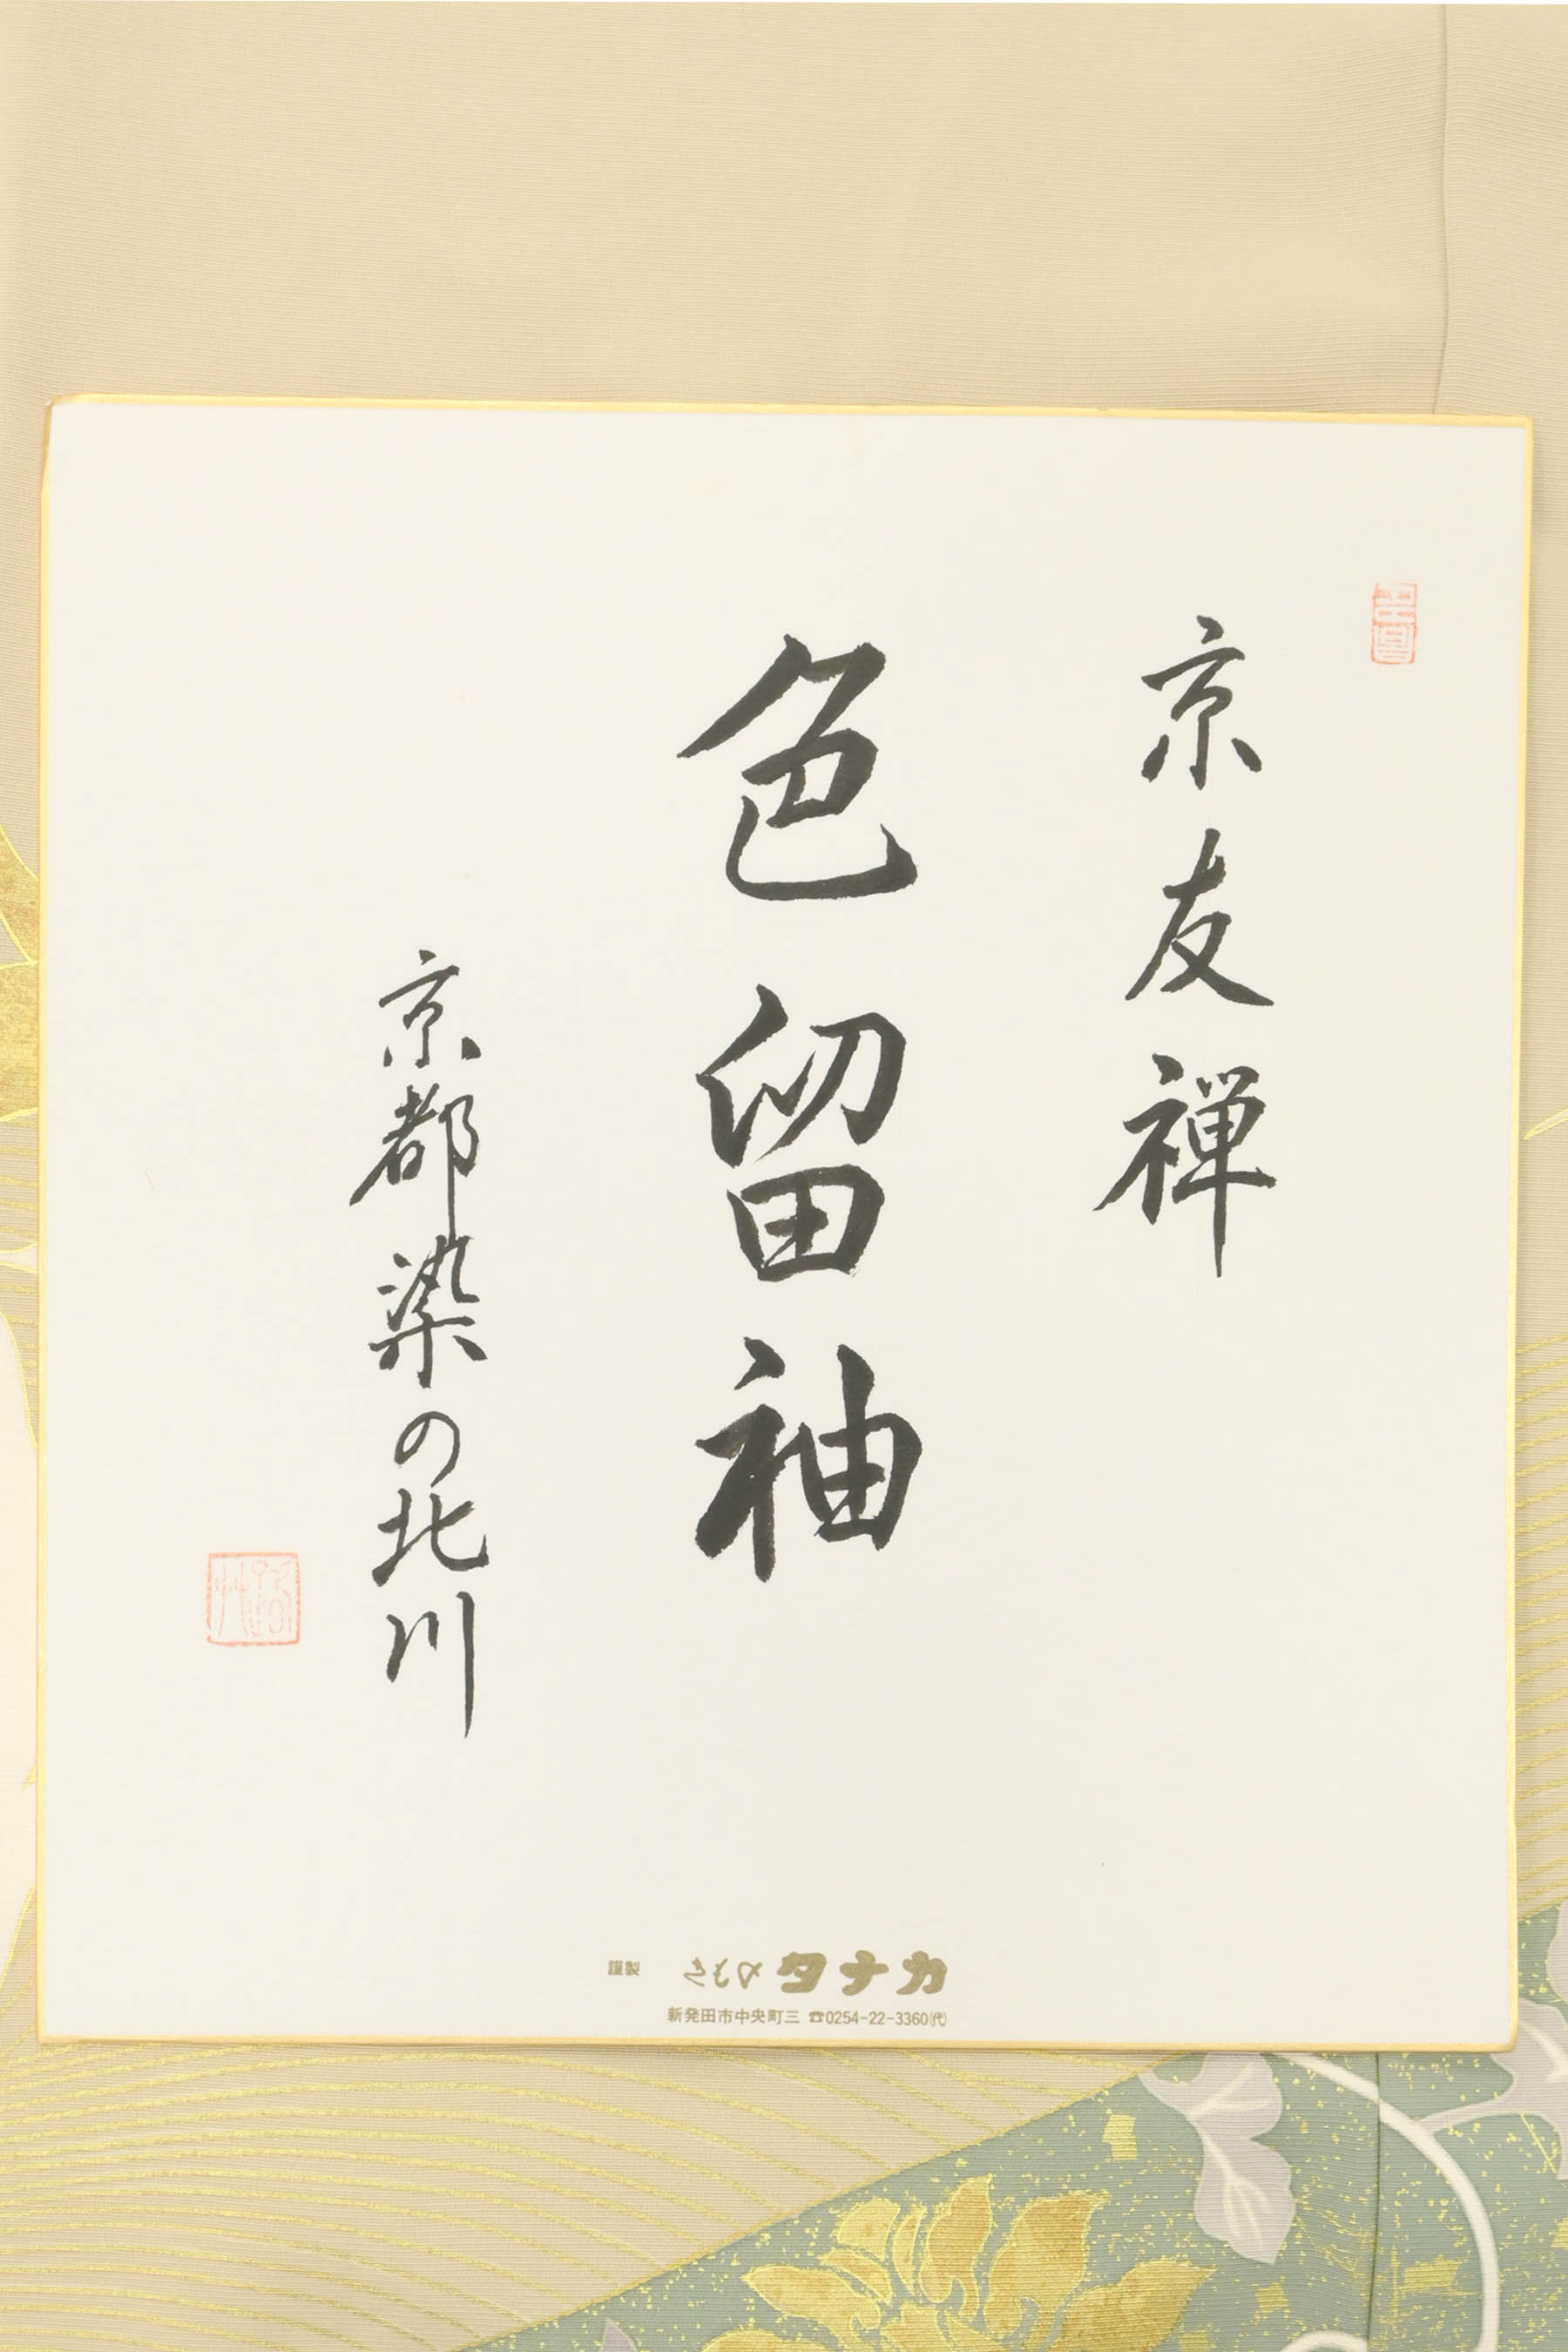 京友禅
色留袖
京都染の北川
謹製 きもの タナカ
新発田市中央町三 ☎0254-22-3360㈹